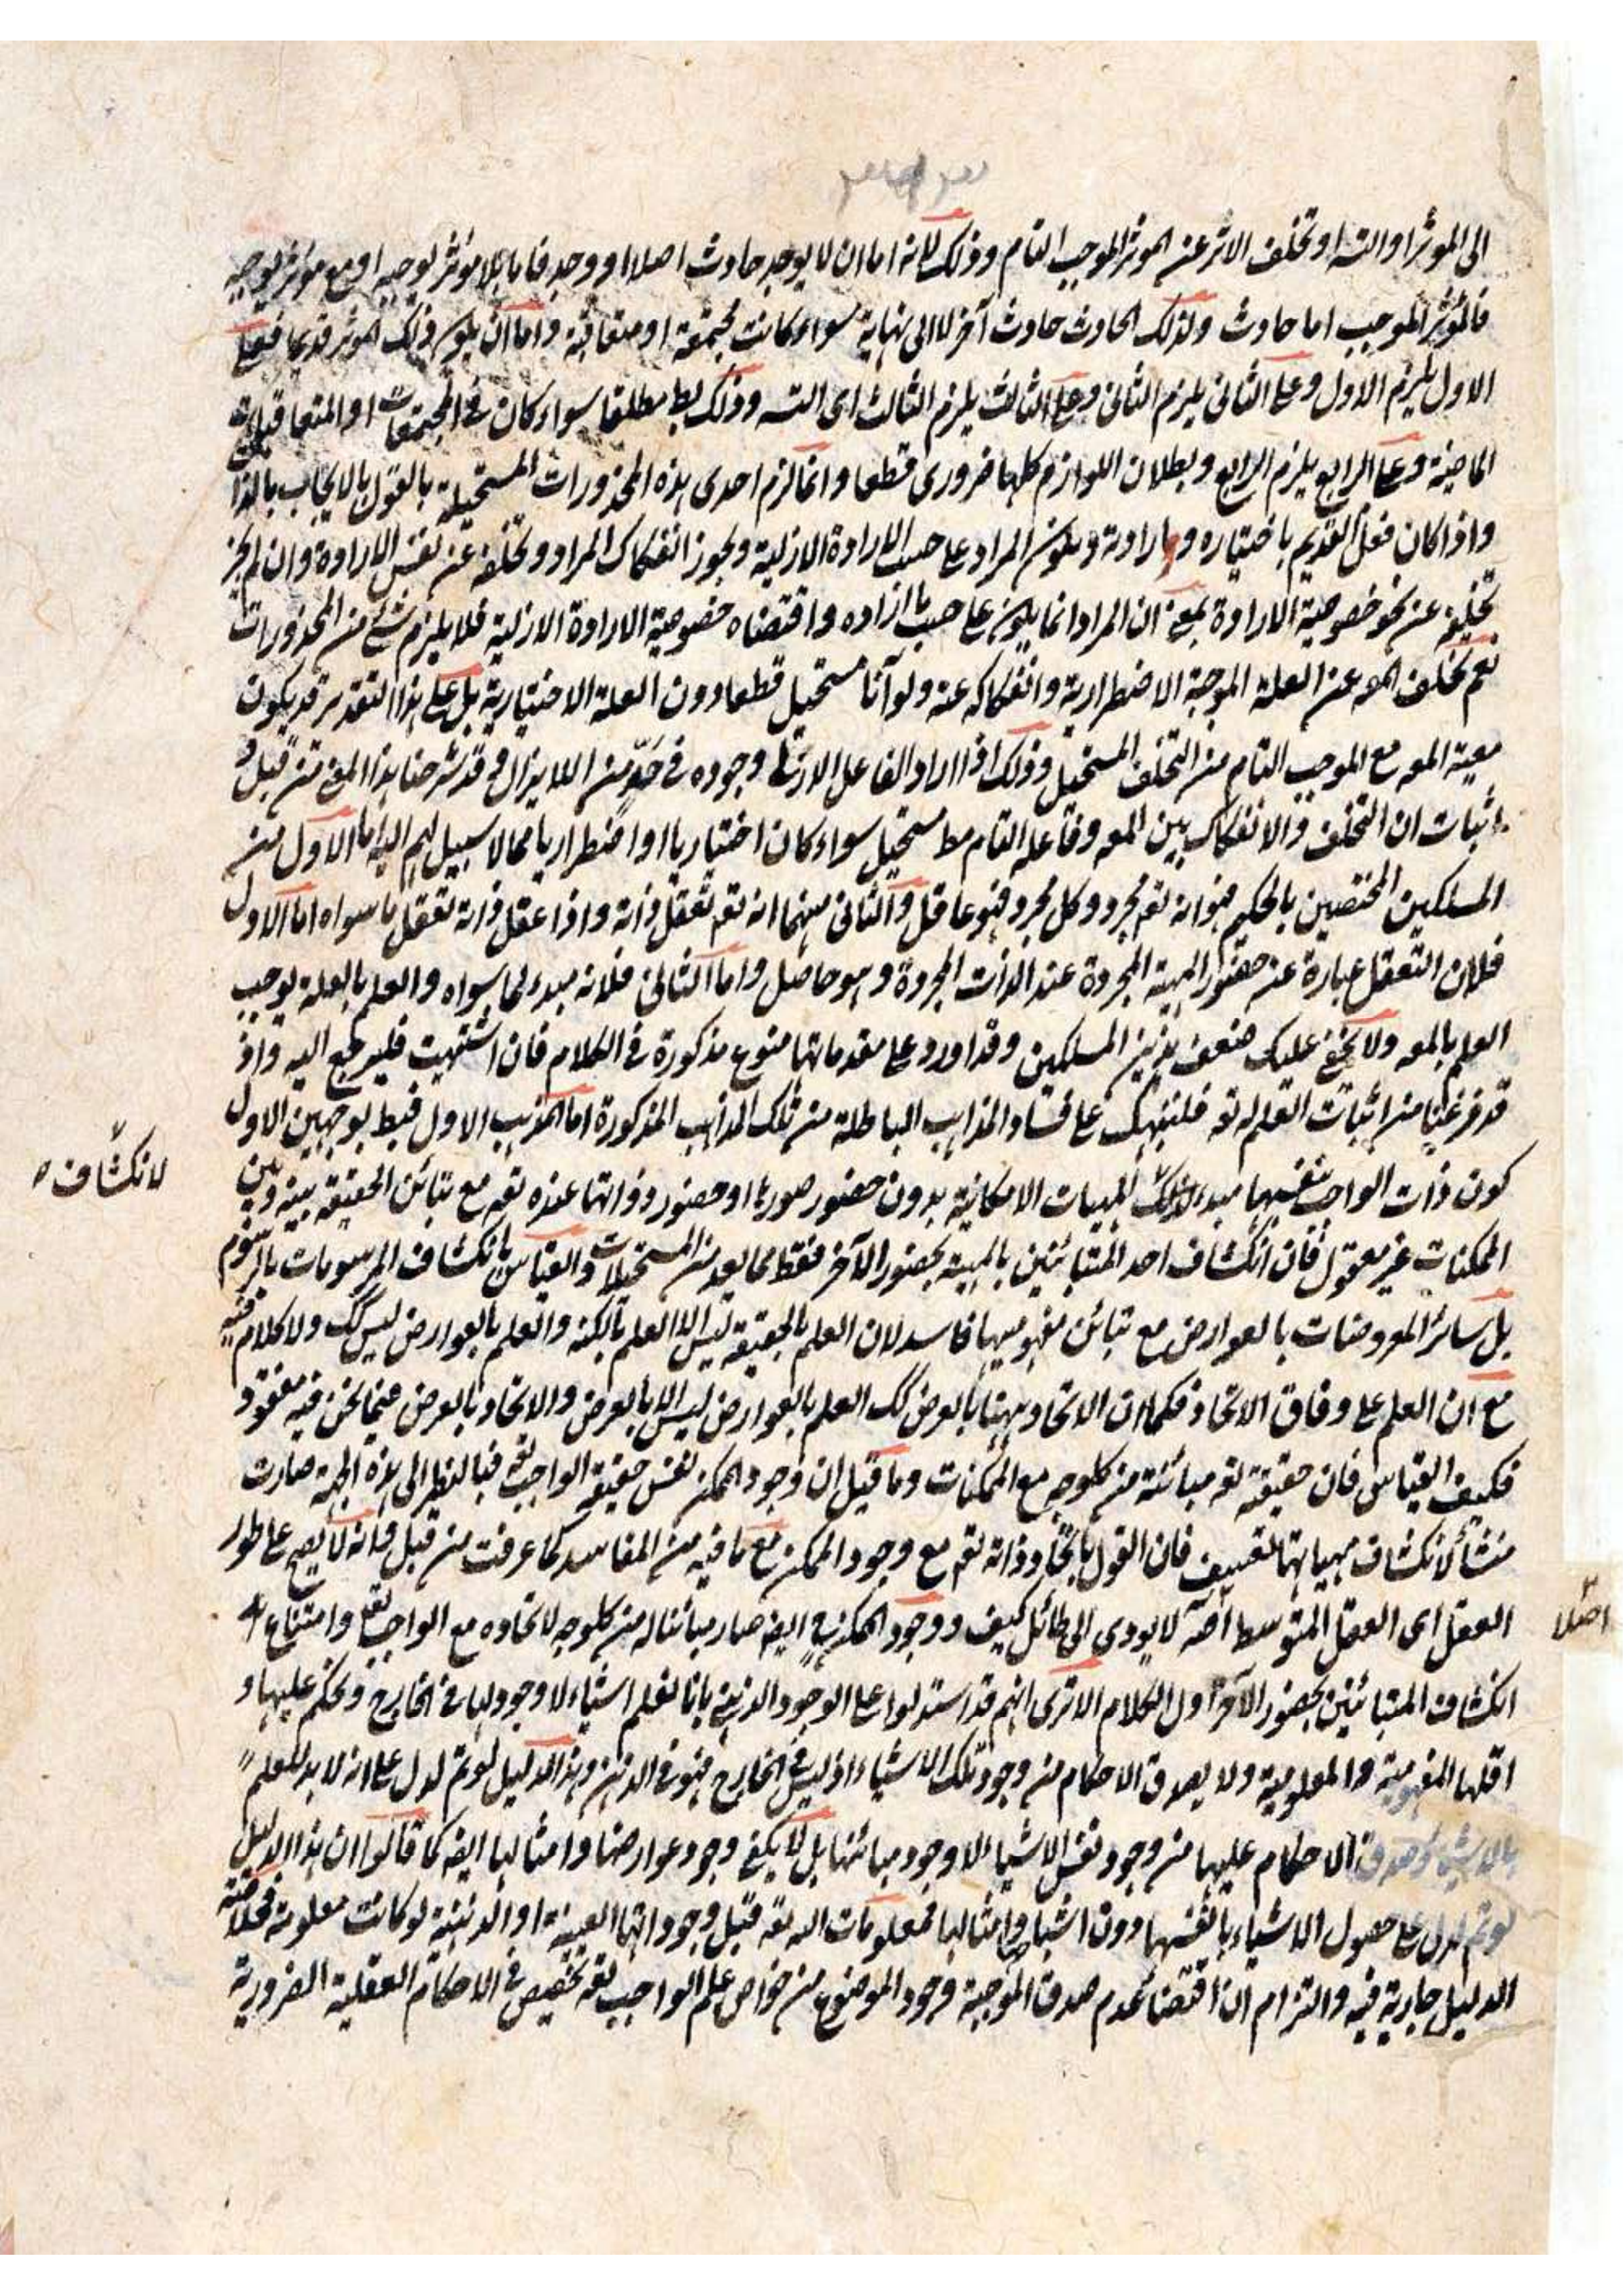 الى المؤثر او التسـ او تخلف الاثر عن الموثر الموجب التام وذلك لانه اما ان لا يوجد حادث اصلا او وجد فاما بلا موثر يوجبه او مع موثر يوجبه
فالمؤثر الموجب اما حادث ولذلك الحادث حادث آخر لا الى نهاية سواء كانت مجتمعة او متعاقبة واما ان يكون ذلك الموثر قديما فعلى
الاول يلزم الاول وعلى الثانى يلزم الثانى وعلى الثالث يلزم الثالث اى التسـ وذلك بط مطلقا سواء كان فى المجتمعات او المتعاقبات
الماضية وعلى الرابع يلزم الرابع وبطلان اللوازم كلها ضرورى قطعا وانما لزم احدى هذه المحذورات المستحيلة بالقول بالايجاب بالذات
واذا كان فعل القديم باختياره وبارادته ويكون المراد على حسب الارادة الازلية ويجوز انفكاك المراد وتخلفه عن نفس الارادة وان لم يجز
تخلفه عن نحو خصوصية الارادة بمعنى ان المراد انما يكون على حسب ما اراده واقتضاه خصوصية الارادة الازلية فلا يلزم شئ من المحذورات
نعم تخلف المعـ عن العلة الموجبة الاضطرارية وانفكاكه عنه ولو آنا مستحيل قطعا دون العلة الاختيارية بل على هذا التقدير قد يكون
معية المعـ مع الموجب التام من التخلف المستحيل وذلك اذا اراد الفاعل الازلى وجوده فى حدّ من اللايزال وقد شرحنا هذا المعنى من قبل و
اثبات ان التخلف والانفكاك بين المعـ وفاعله التام مط مستحيل سواء كان اختياريا او اضطراريا مما لا سبيل لهم اليه اما الاول من
المسلكين المختصين بالحكيم فهو انه تعـ مجرد وكل مجرد فهو عاقل والثانى منهما انه تعـ تعقل ذاته واذا عقل ذاته تعقل ما سواه اما الاول
فلان التعقل عبارة عن حضور المهية المجردة عند الذات المجردة وهو حاصل واما الثانى فلانه مبدء لما سواه والعلم بالعلة يوجب
العلم بالمعـ ولا يخفى عليك ضعف هذين المسلكين وقد اورد على مقدماتها منوع مذكورة فى الكلام فان اشتهيت فليرجع اليه واذ
قد فرغنا من اثبات العلم له تعـ فلننبهك على فساد المذاهب الباطلة من تلك المذاهب المذكورة اما المذهب الاول فبط بوجهين الاول
كون ذات الواجب بنفسها مبدء لانكشاف المهيات الامكانية بدون حضور صورها او حضور ذواتها عنده تعـ مع تباين الحقيقة بينه وبين
لانكشاف
الممكنات غير معقول فان انكشاف احد المتباينين بالمهية بحضور الآخر فقط مما يعد من المستحيلات والقياس بانكشاف المرسومات بالرسوم
بل سائر المعروضات بالعوارض مع تباين مفهوميها فاسد لان العلم بالحقيقة ليس الا العلم بالكنه والعلم بالعوارض ليس كك ولا كلام فيه
مع ان العلم على وفاق الاتحاد فكما ان الاتحاد ههنا بالعرض كك العلم بالعوارض ليس الا بالعرض والاتحاد بالعرض فيما نحن فيه مفقود
فكيف القياس فان حقيقته تعـ مباينة من كل وجه مع الممكنات وما قيل ان وجود الممكن نفس حقيقة الواجب تعـ فبالنظر الى هذه الجهة صارت
منشأ لانكشاف مهياتها فضعيف فان القول باتحاد ذاته تعـ مع وجود الممكن مع ما فيه من المفاسد كما عرفت من قبل فانه لا يصح على طور
العقل اى العقل المتوسط لا يودى الى طائل كيف ووجود الممكن ايضـ صار مباينا له من كل وجه لاتحاده مع الواجب تعـ وامتناع
اصلا
انكشاف المتباينين بحضور الآخر اول الكلام الا ترى انهم قد استدلوا على الوجود الذهنى بانا نعلم اشياء لا وجود لها فى الخارج ونحكم عليها و
اقلها المفهومية والمعلومية ولا يصدق الاحكام من وجود تلك الاشياء اذ ليس فى الخارج فهو فى الذهن وهذا الدليل لو تم لدل على انه لا بد للعلم
بالاشياء وصدق الاحكام عليها من وجود نفس الاشياء لا وجود مباينها بل لا يكفى وجود عوارضها وامثالها ايضـ كما قالوا ان هذا الدليل
لو تم لدل على حصول الاشياء بانفسها دون اشباحها وامثالها فمعلومات الله تعـ قبل وجوداتها العينية او الذهنية لو كانت معلومة فخلاصة
الدليل جارية فيه والتزام ان اقتضاء عدم صدق الموجبة وجود الموضوع من خواص علم الواجب تعـ تخصيص فى الاحكام العقلية الضرورية